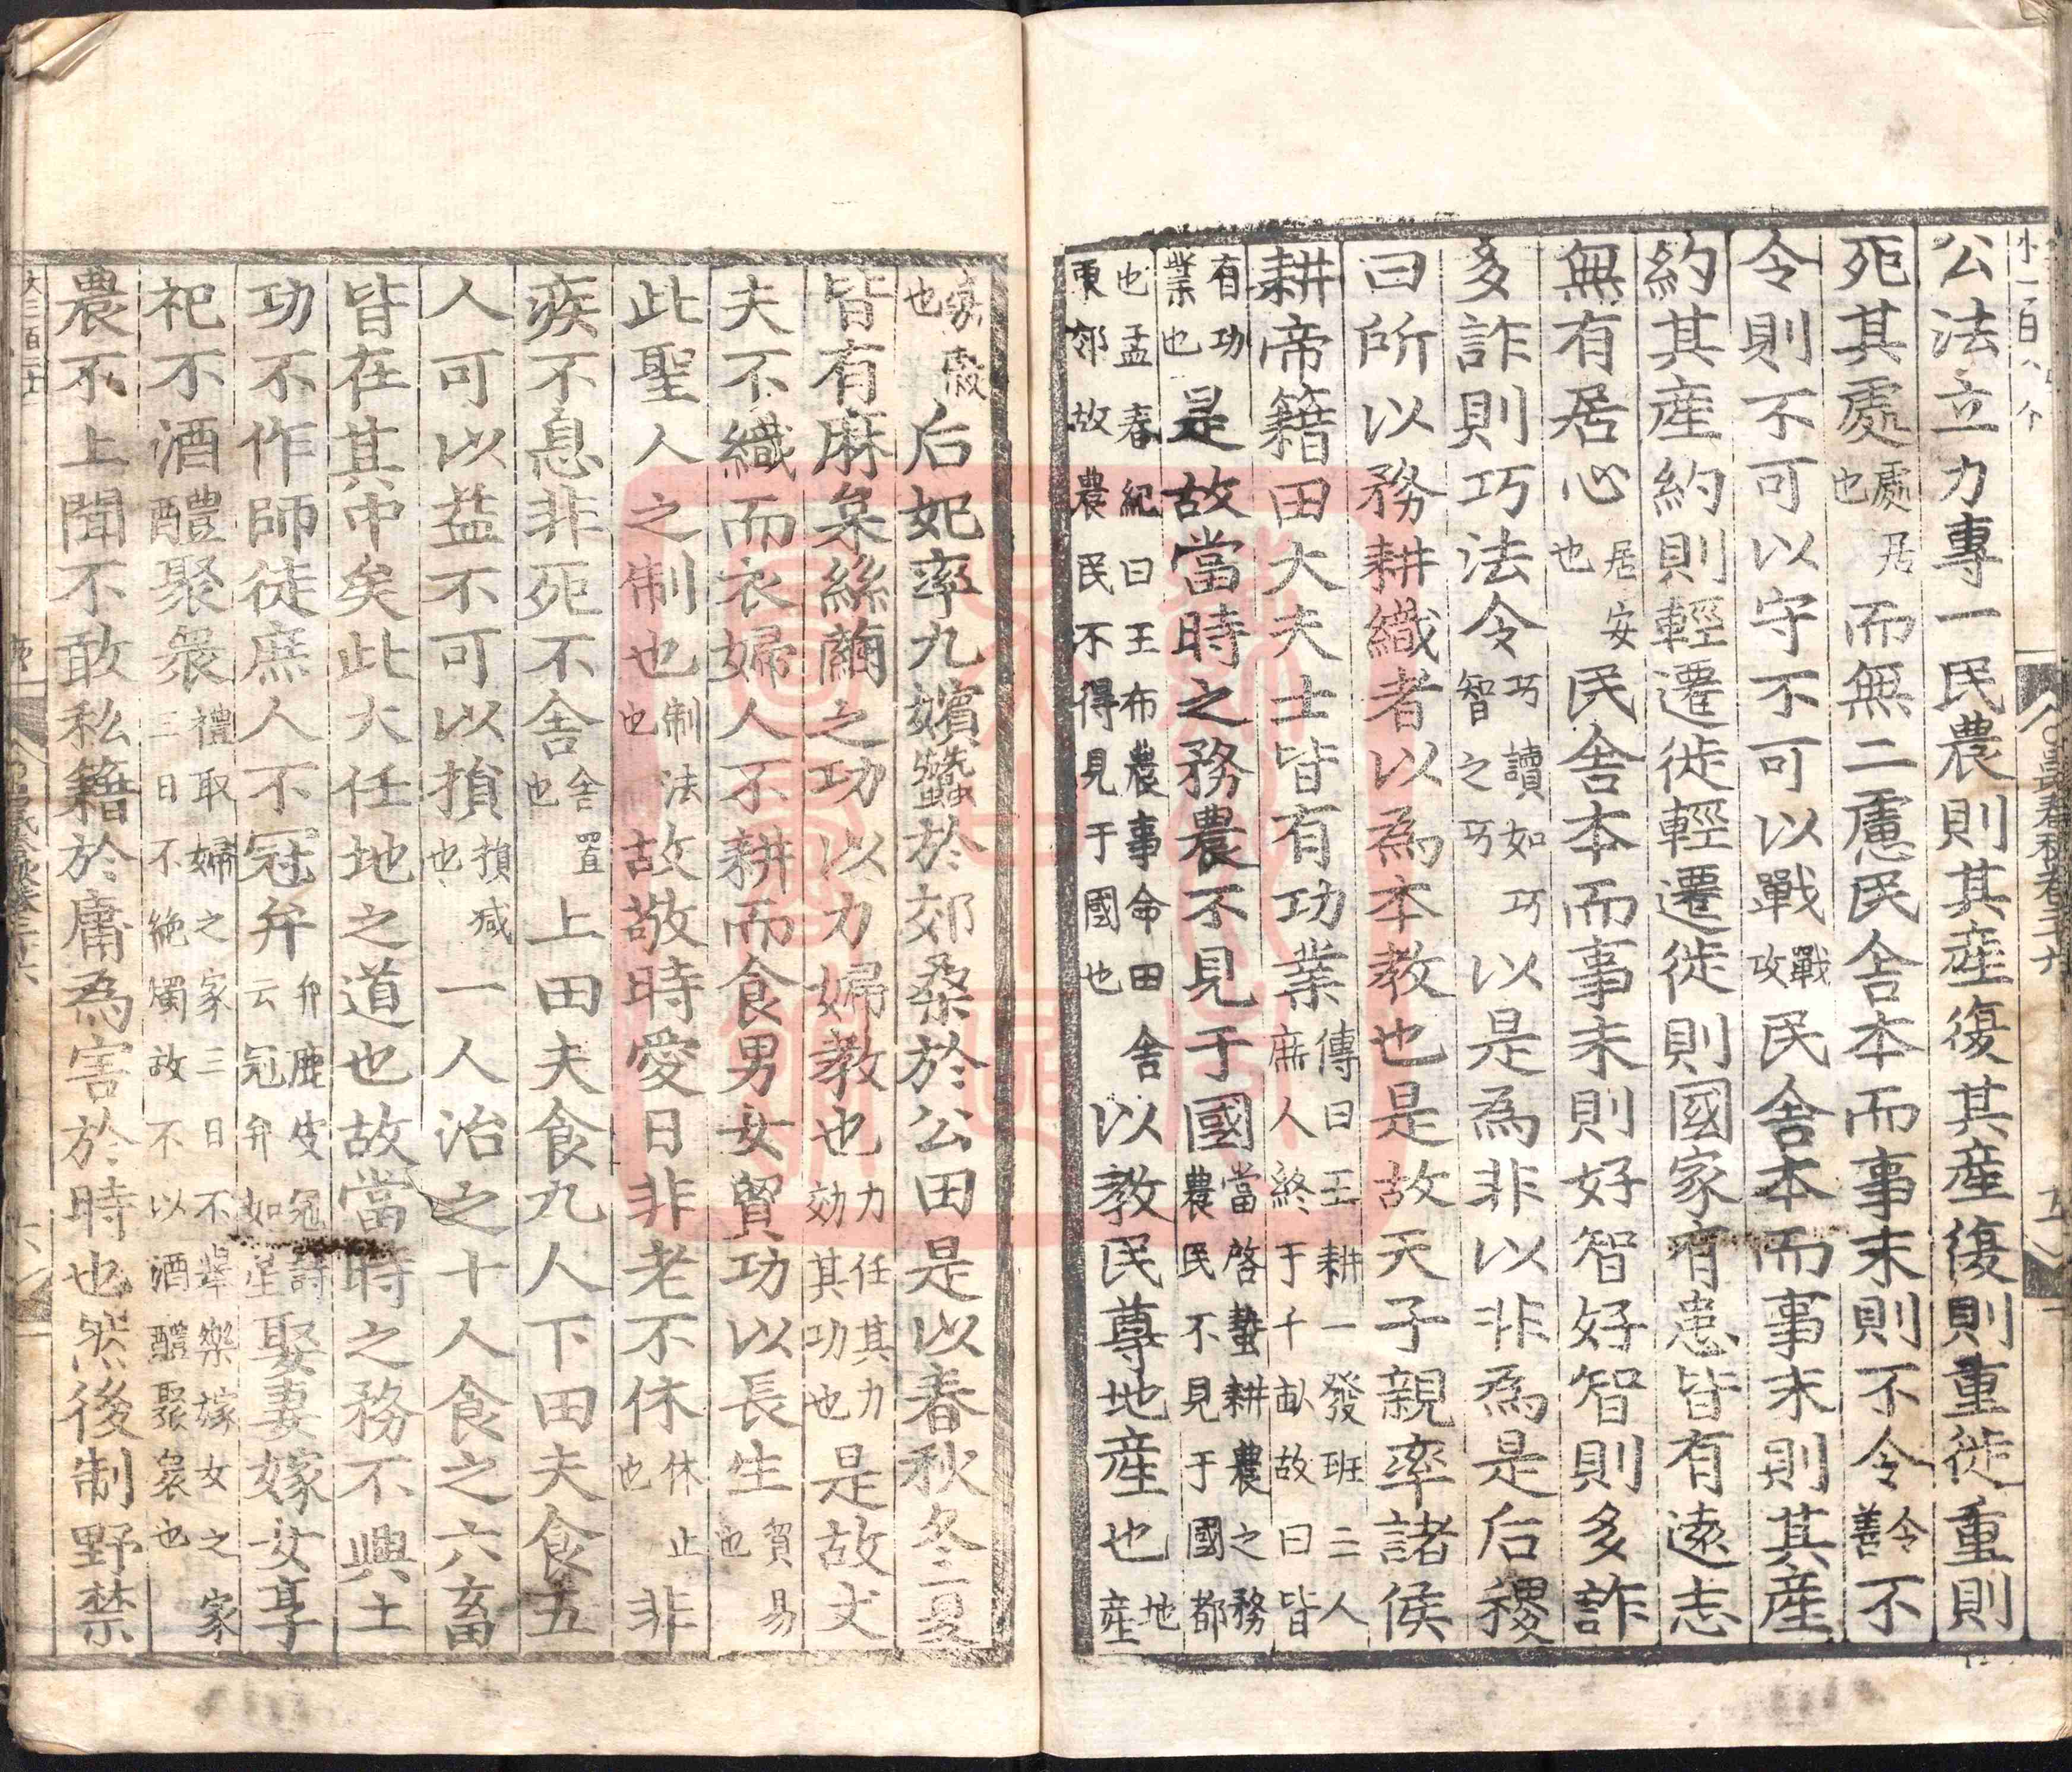 公法立力專一民農則其産復其産復則重徙重則
死其處處居也而無二慮民舍本而事末則不令令善不
令則不可以守不可以戰戰攻民舍本而事末則其産
約其産約則輕遷徙輕遷徙則國家有患皆有遠志
無有居心居安也民舍本而事末則好智好智則多詐
多詐則巧法令巧讀如巧智之巧以是為非以非為是后稷
曰所以務耕織者以為本教也是故天子親率諸侯
耕帝籍田大夫士皆有功業傳曰王耕一發班二人庶人終于千畝故曰皆
有功業也是故當時之務農不見于國當啓蟄耕農之務農民不見于國都
也孟春紀曰王布農事命田舍東郊故農民不得見于國也以教民尊地産也地産
也后妃率九嬪蠶於郊桑於公田是以春秋冬夏
皆有麻枲絲繭之功以力婦教也力任其力効其功也是故丈
夫不織而衣婦人不耕而食男女貿功以長生貿易也
此聖人之制也制法也故敬時愛日非老不休休止也非
疾不息非死不舍舍置也上田夫食九人下田夫食五
人可以益不可以損損減也一人治之十人食之六畜
皆在其中矣此大任地之道也故當時之務不興土
功不作師徒庶人不冠弁弁鹿皮冠詩云冠弁如星娶妻嫁女享
祀不酒醴聚衆禮取婦之家三日不舉樂嫁女之家三日不絶燭故不以酒醴聚衆也
農不上聞不敢私籍於庸為害於時也然後制野禁